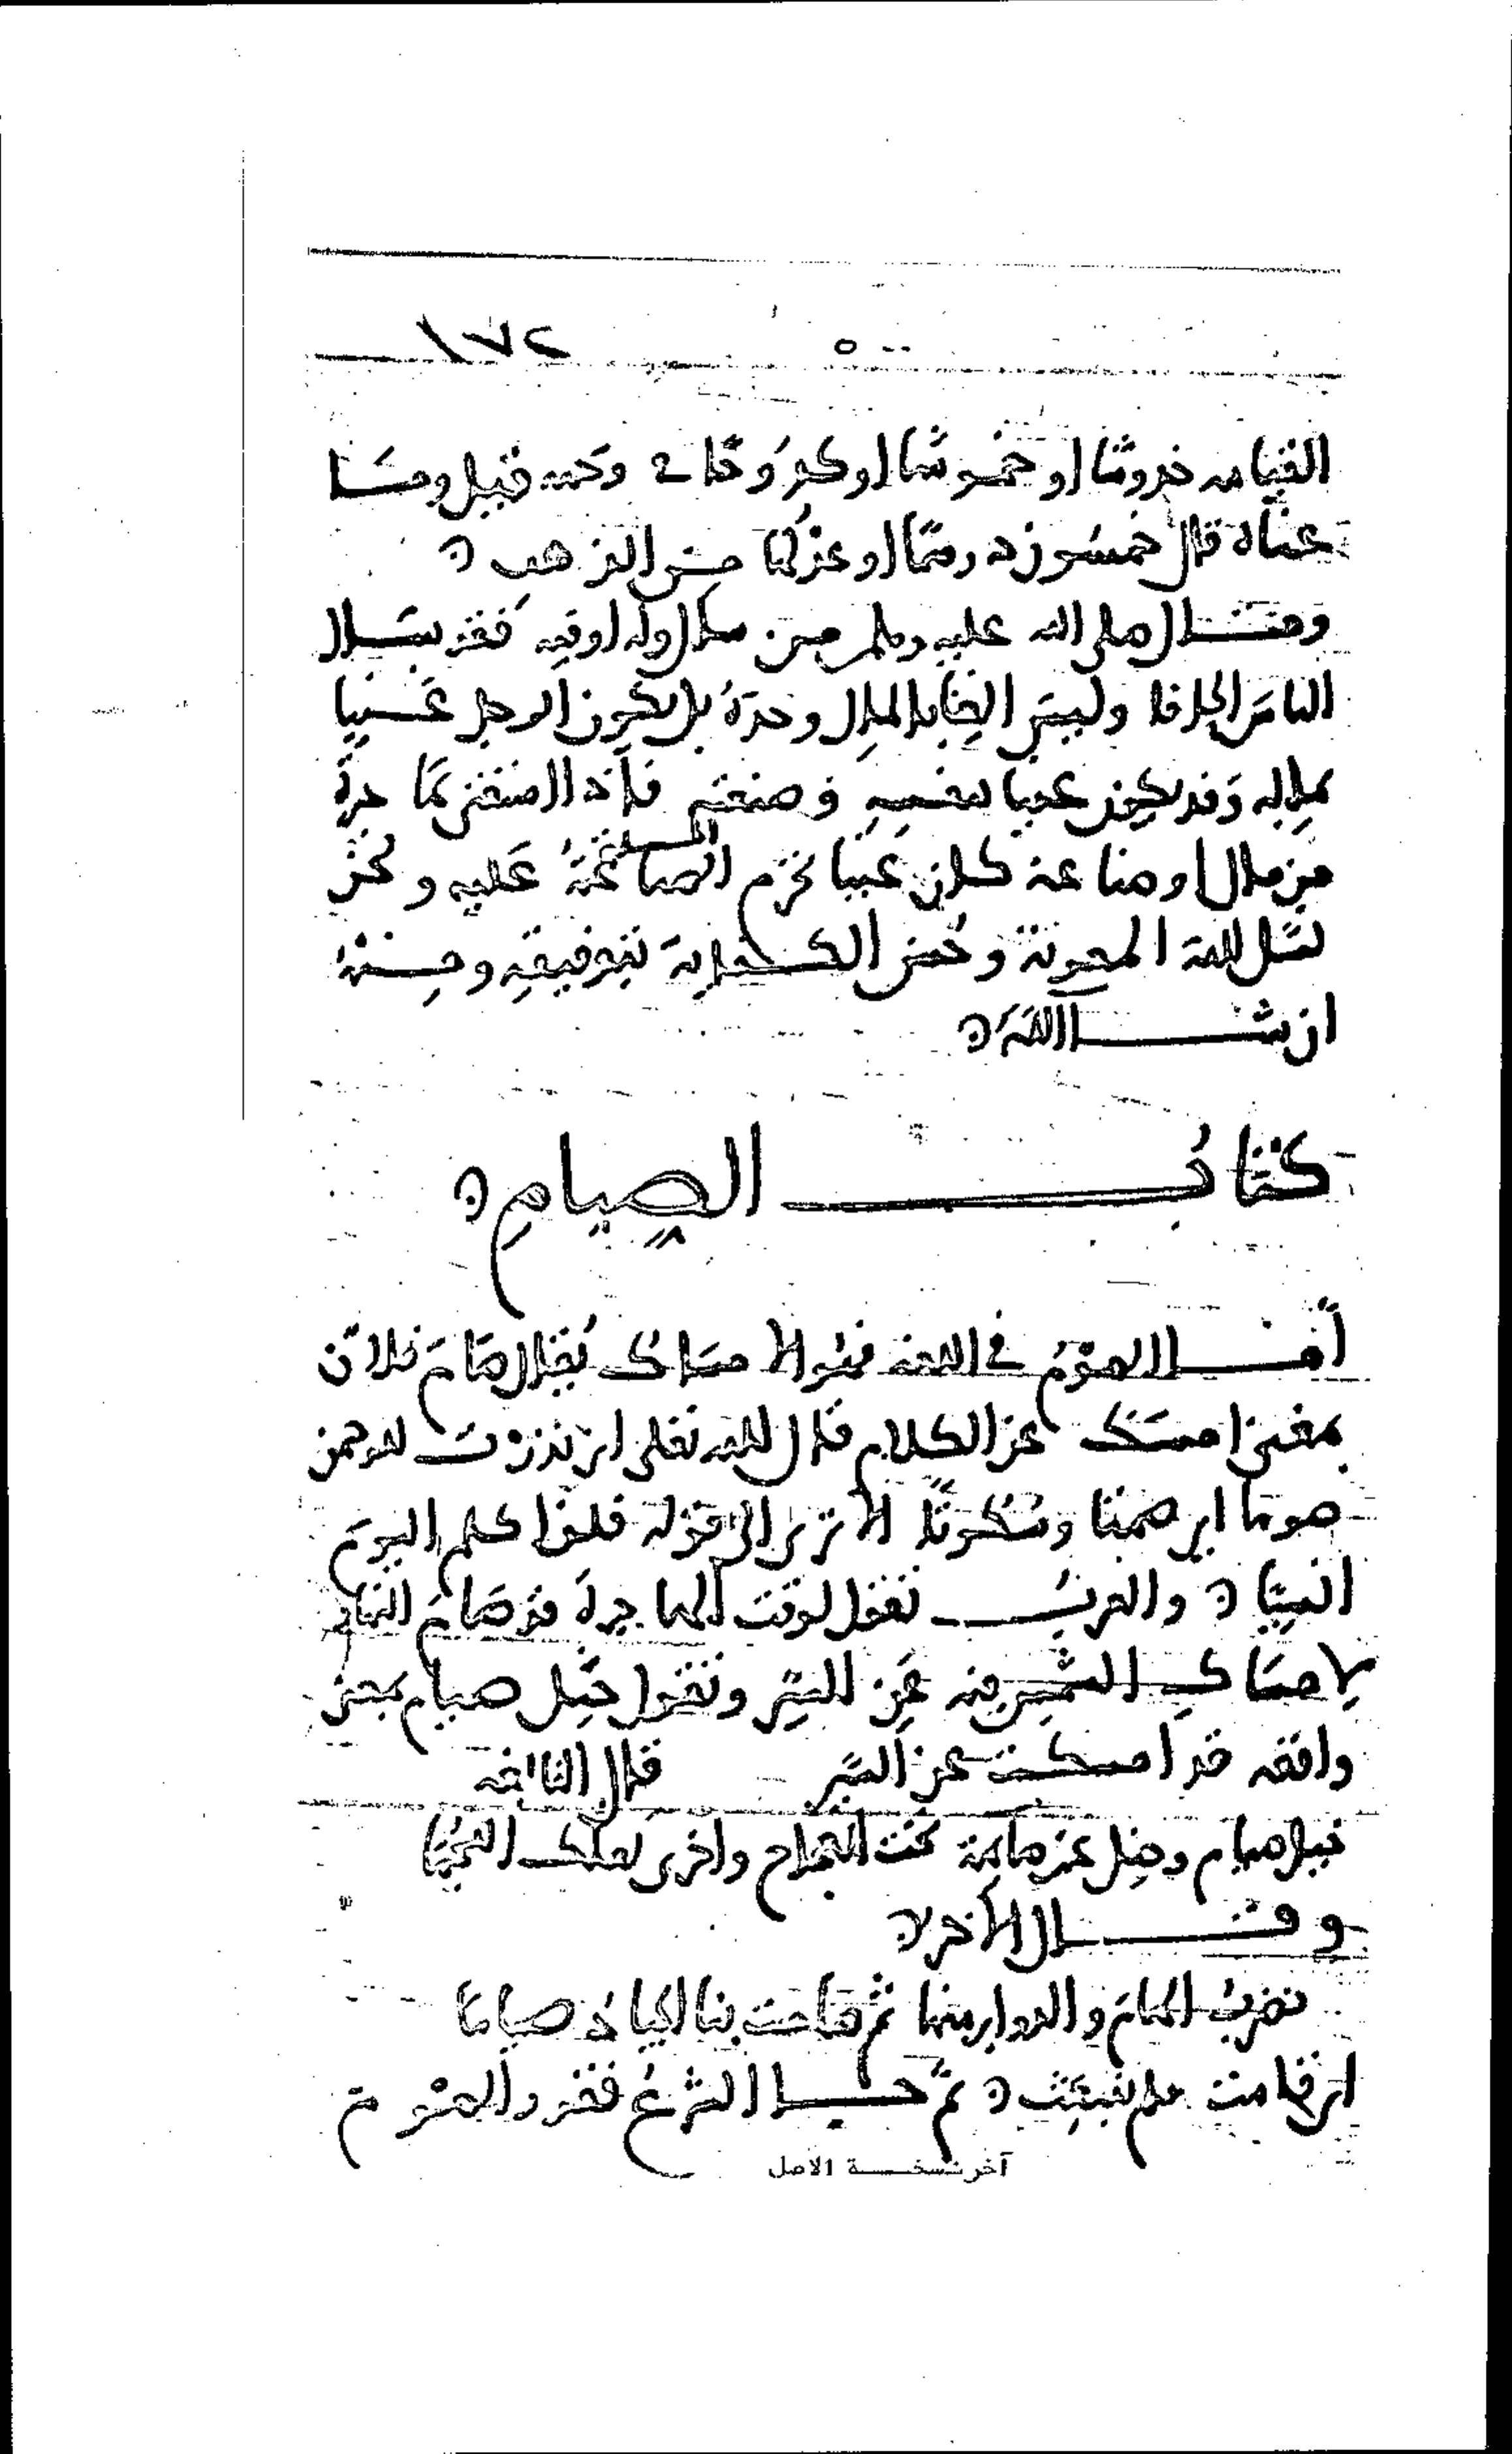 ١٧٢
القيامه خدوشا او خموشا او كدوحا في وجهه قيل وما
غناه قال خمسون درهما او عدلها من الذهب
وقال صلى الله عليه وسلم من سال وله اوقيه فقد سال
الناس الحافا وليس الغنا بالمال وحده بل يكون الرجل غنيا
بماله وقد يكون غنيا بنفسه وصنعته فاذا استغنى بما
من مال او صناعة كان غنيا تحرم المسئلة عليه ونحن
نسل الله المعونة وحسن الكفاية بتوفيقه ومنه
ان شا الله
كتاب الصيام
أما الصوم في اللغه فهو الامساك يقال صام فلان
بمعنى امسك عن الكلام قال الله تعلى اني نذرت للرحمن
صوما اي صمتا وسكوتا الا ترى الى قوله فلن اكلم اليوم
انسيا والعرب تقول لوقت الهاجرة قد صام النهار
لامساك الشمس فيه عن السير وتقول خيل صيام بمعنى
واقفه قد امسكت عن السير قال النابغه
خيل صيام وخيل غير صايمة تحت العجاج واخرى تعلك اللجما
وقال الاخر
نضرب الهام والدوابر منها ثم قامت بنا الجياد صياما
اي قامت فلم تنبعث ثم جا الشرع فقرر الصوم
آخر نسخة الاصل